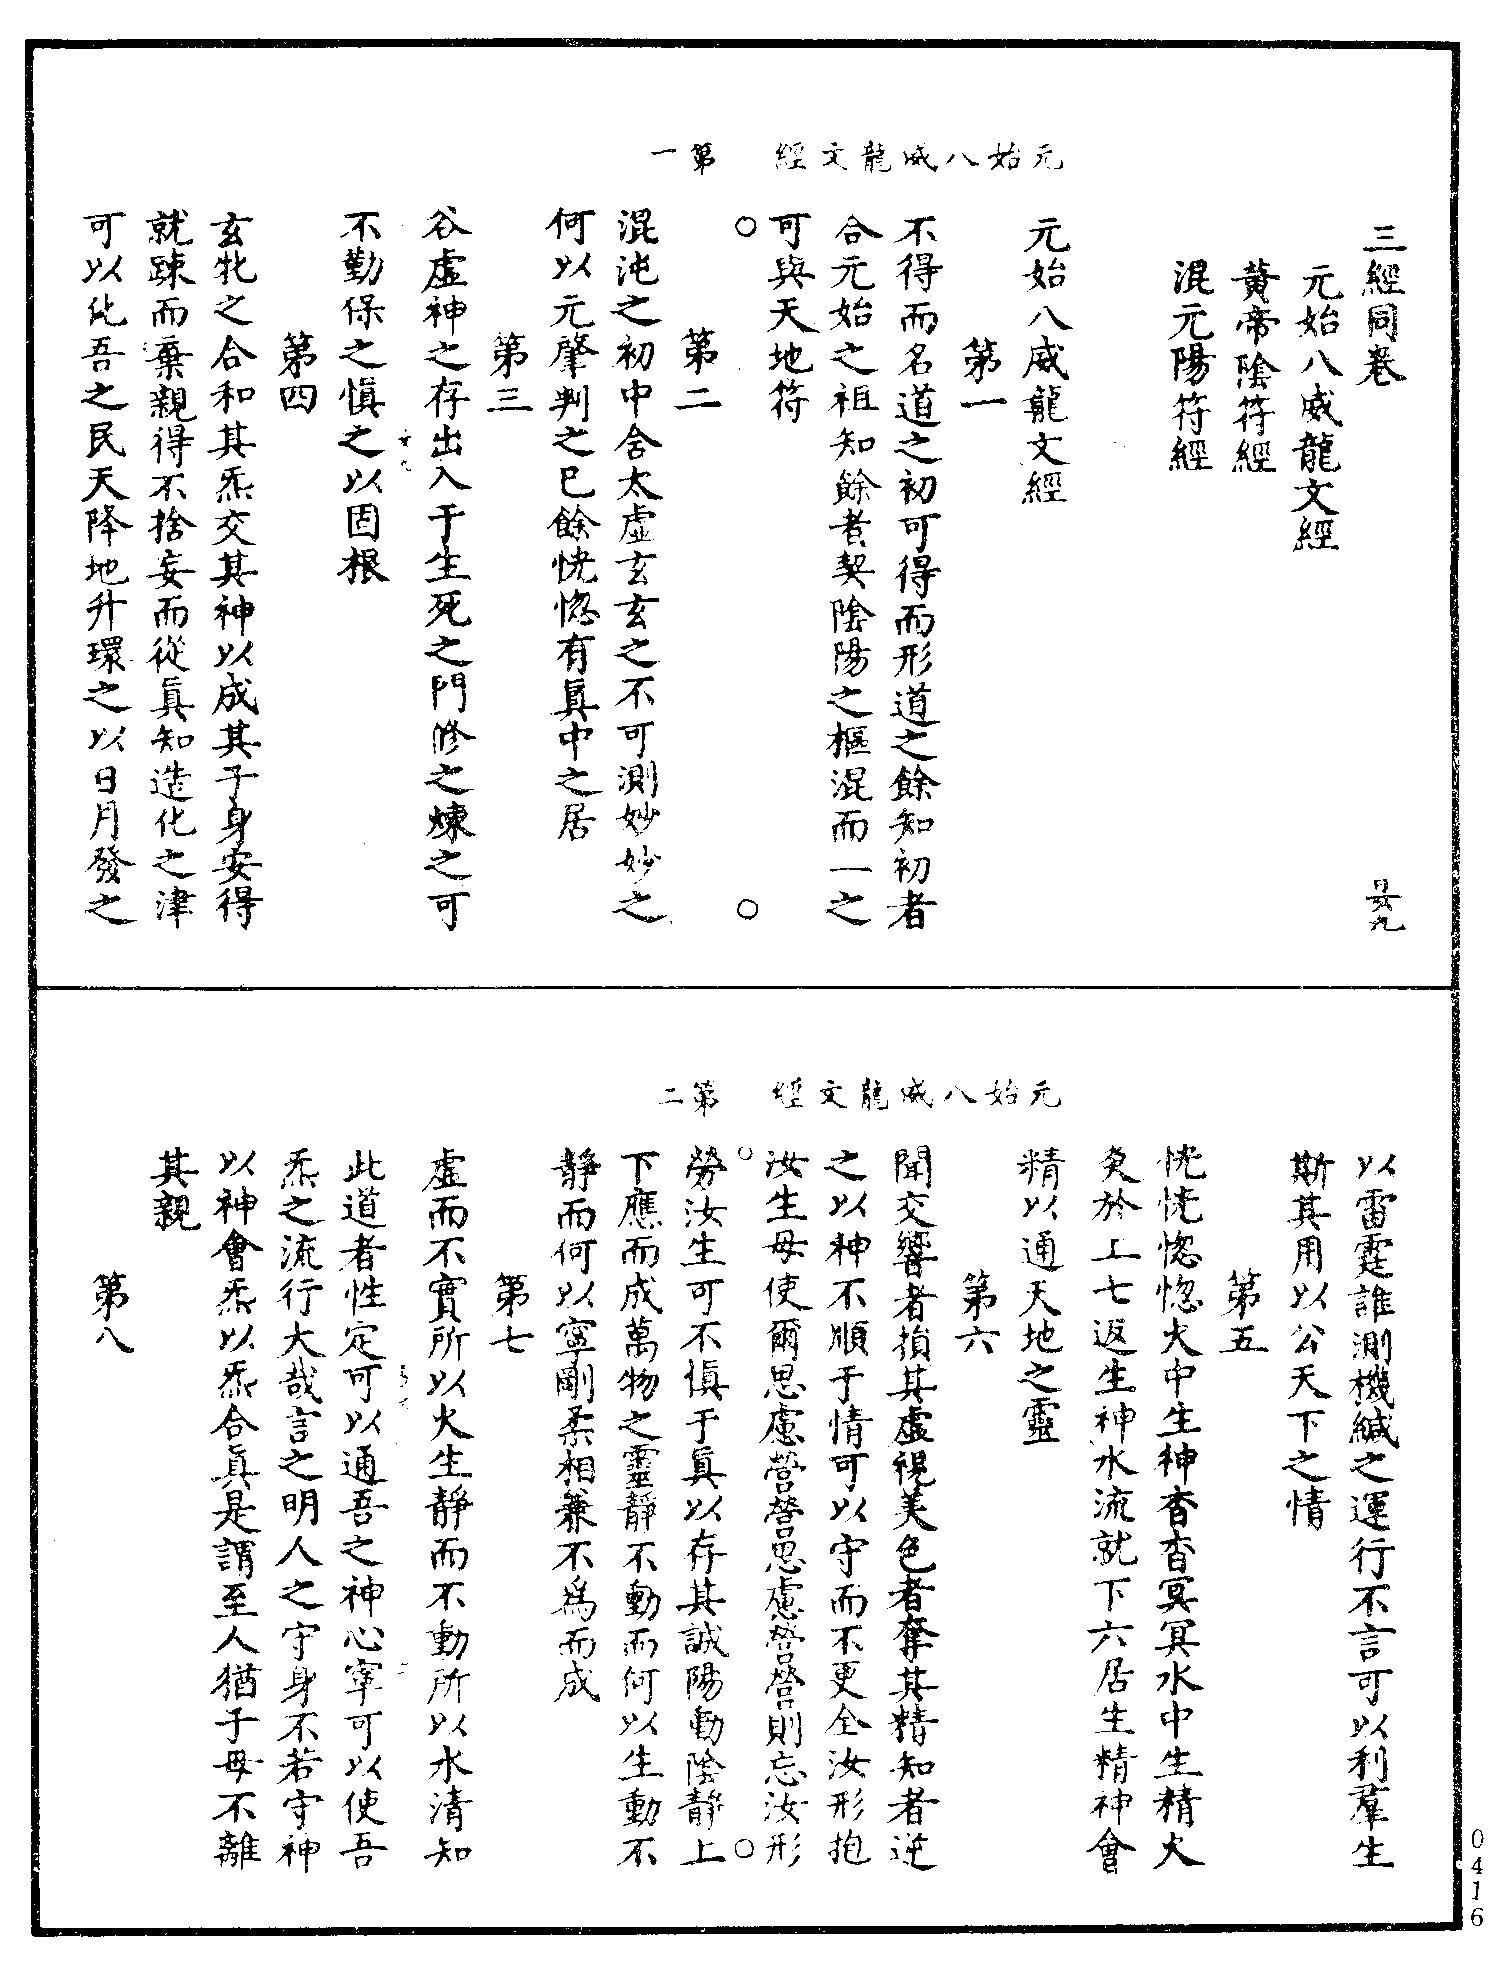 三經同卷
元始八威龍文經
黃帝陰符經
混元陽符經
元始八威龍文經 第一
元始八威龍文經
第一
不得而名道之初可得而形道之餘知初者
合元始之祖知餘者契陰陽之樞混而一之
可與天地符
第二
混沌之初中含太虛玄玄之不可測妙妙之
何以元肇判之已餘恍惚有真中之居
第三
谷虛神之存出入于生死之門修之煉之可
不勤保之慎之以固根
第四
玄牝之合和其炁交其神以成其子身安得
就踈而棄親得不捨妄而從真知造化之津
可以化吾之民天降地升環之以日月發之
元始八威龍文經 第二
以雷霆誰測機緘之運行不言可以利羣生
斯其用以公天下之情
第五
恍恍惚惚火中生神杳杳冥冥水中生精火
炎於上七返生神水流就下六居生精神會
精以通天地之靈
第六
聞交響者損其虛視美色者奪其精知者逆
之以神不順于情可以守而不更全汝形抱
汝生毋使爾思慮營營思慮營營則忘汝形
勞汝生可不慎于真以存其誠陽動陰靜上
下應而成萬物之靈靜不動而何以生動不
靜而何以寧剛柔相兼不為而成
第七
虛而不實所以火生靜而不動所以水清知
此道者性定可以通吾之神心寧可以使吾
炁之流行大哉言之明人之守身不若守神
以神會炁以炁合真是謂至人猶子母不離
其親
第八
0416